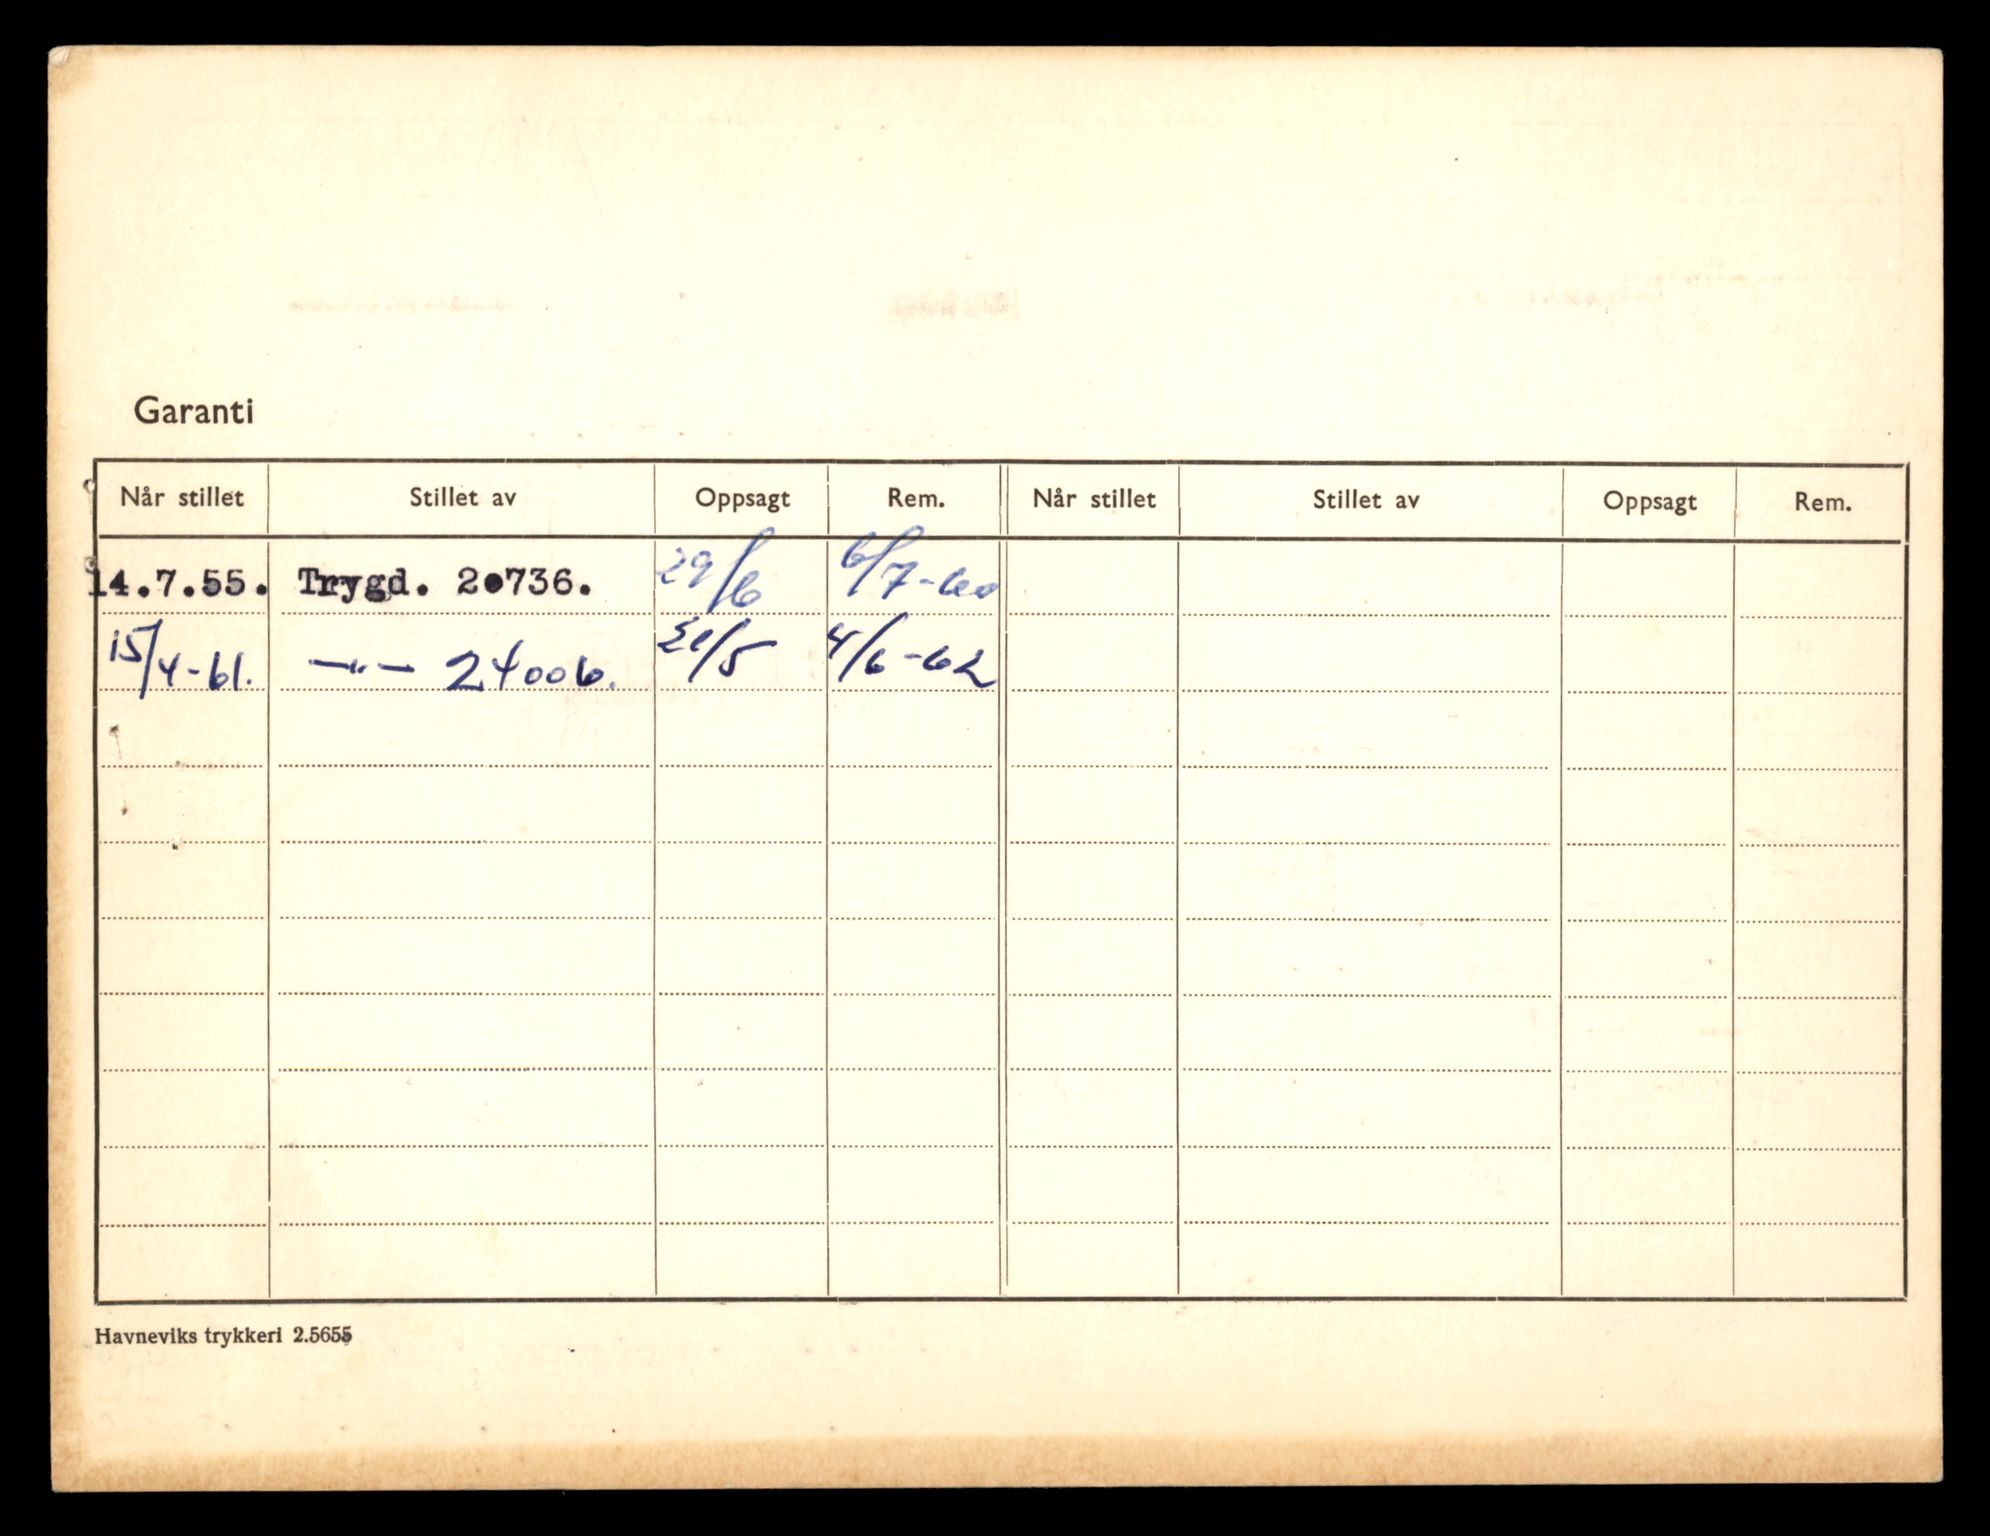 Garanti
Når stillet Stillet av Oppsagt Rem. Når stillet Stillet av Oppsagt Rem.
14.7.55. Trygd. 20736. 29/6 6/7-60
15/4-61. —"— 24006. /5 4/6-62
Havneviks trykkeri 2.5655